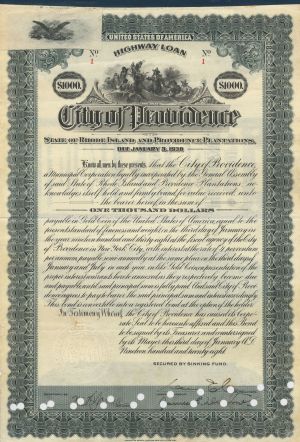 UNITED STATES OF AMERICA
HIGHWAY LOAN
No No
1 1
$1000. $1000.
City of Providence
STATE OF RHODE ISLAND AND PROVIDENCE PLANTATIONS,
DUE JANUARY 3, 1938
Know all men by these presents, That the City of Providence,
a Municipal Corporation legally incorporated by the General Assembly
of said State of Rhode Island and Providence Plantations, ac-
knowledges itself held and firmly bound, for value received, unto
the bearer hereof in the sum of
ONE THOUSAND DOLLARS
payable in Gold Coin of the United States of America, equal to the
present standard of fineness and weight on the third day of January in
the year nineteen hundred and thirty eight at the fiscal agency of the City
of Providence in New York City, with interest at the rate of
per annum payable semi-annually at the same place on the third day of
January and July in each year in like Gold Coin on presentation of the
coupons as they
and payable until said principal sum is fully paid. And said City of Prov-
idence agrees to pay to the bearer the said principal sum and interest accordingly.
This bond is convertible into a registered bond at the option of the holder.
In Testimony Whereof, the City of Providence has caused its corpo-
rate Seal to be hereunto affixed and this Bond
to be signed by its Treasurer and countersigned
by its Mayor this third day of January A.D.
Nineteen hundred and twenty eight.
SECURED BY SINKING FUND.